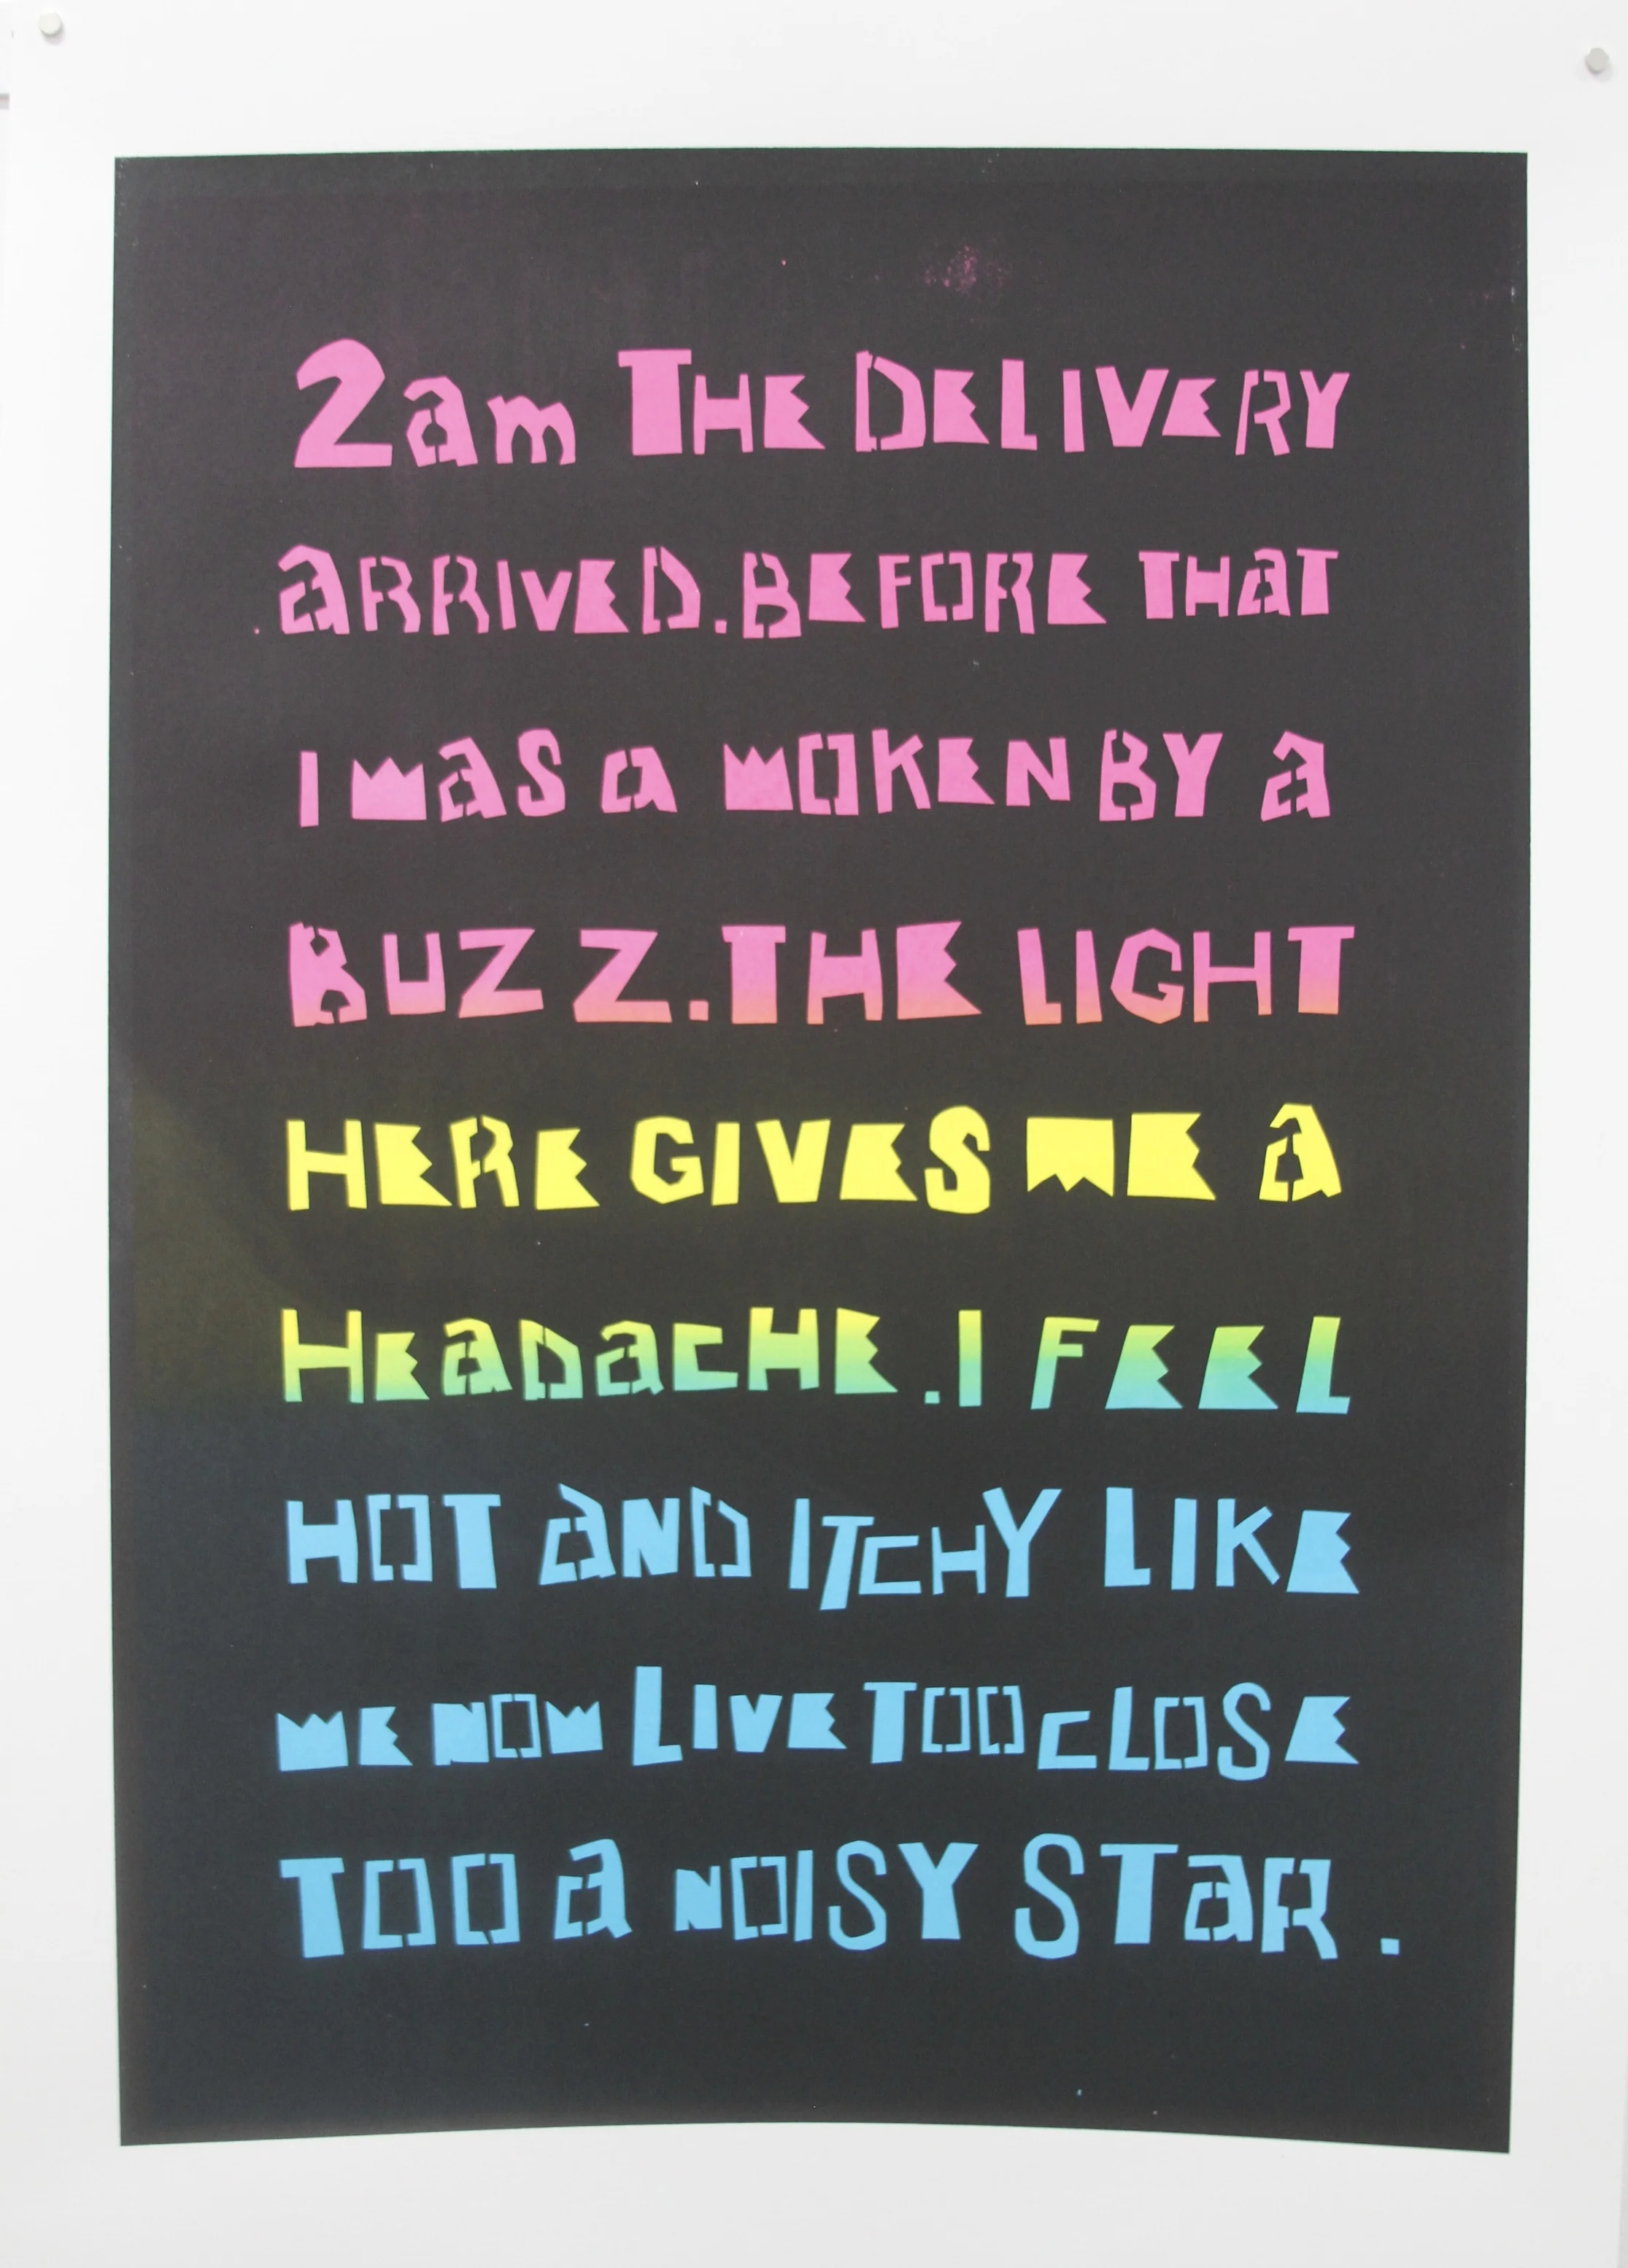 2am THE DELIVERY
aRRIVED. BEFORE THaT
I WaS a WOKEN BY a
BUZZ. THE LIGHT
HERE GIVES ME a
HEaDaCHE. I FEEL
HOT aND ITCHY LIKE
WE NOW LIVE TOO CLOSE
TOO a NOISY STaR.